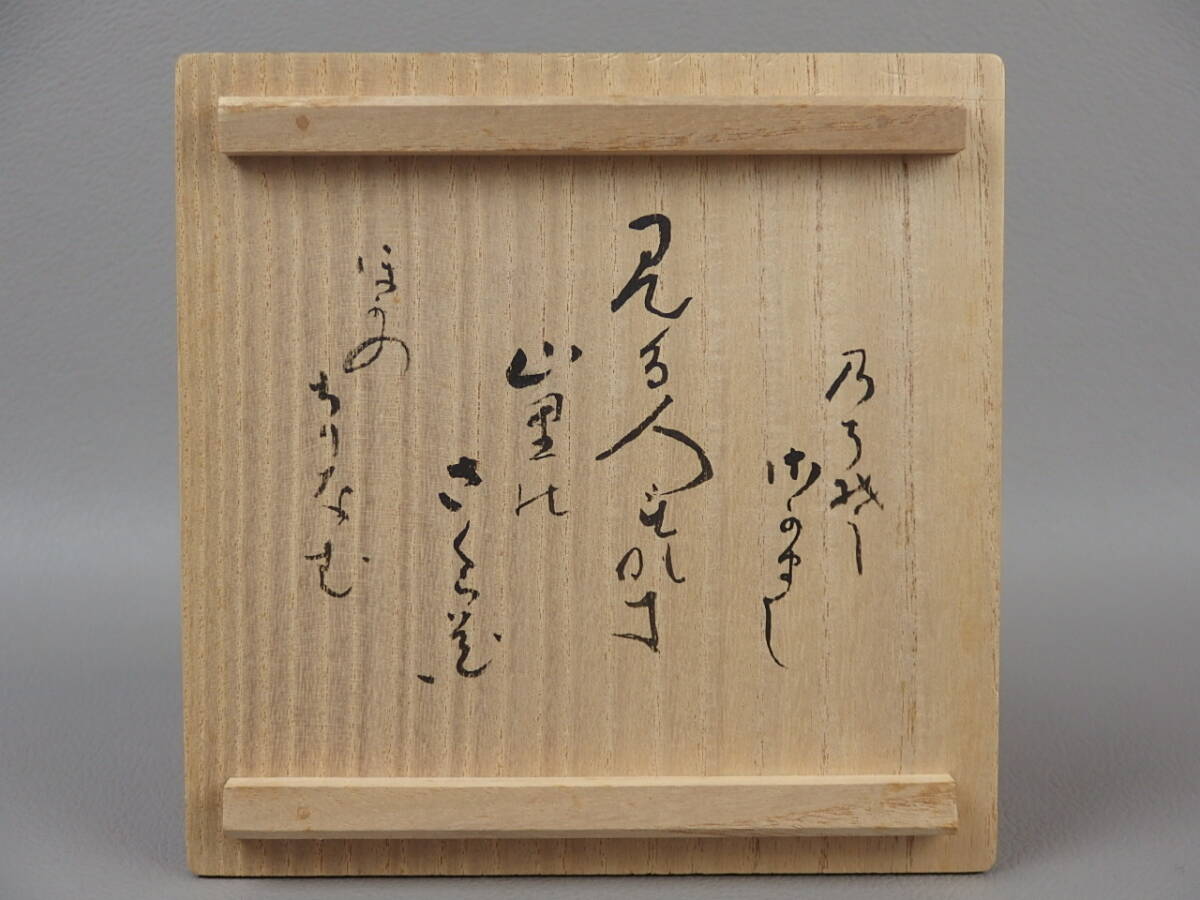 見る人もなき
山里の
さくら花
ほかの
ちりなむ
のちぞ
さかまし